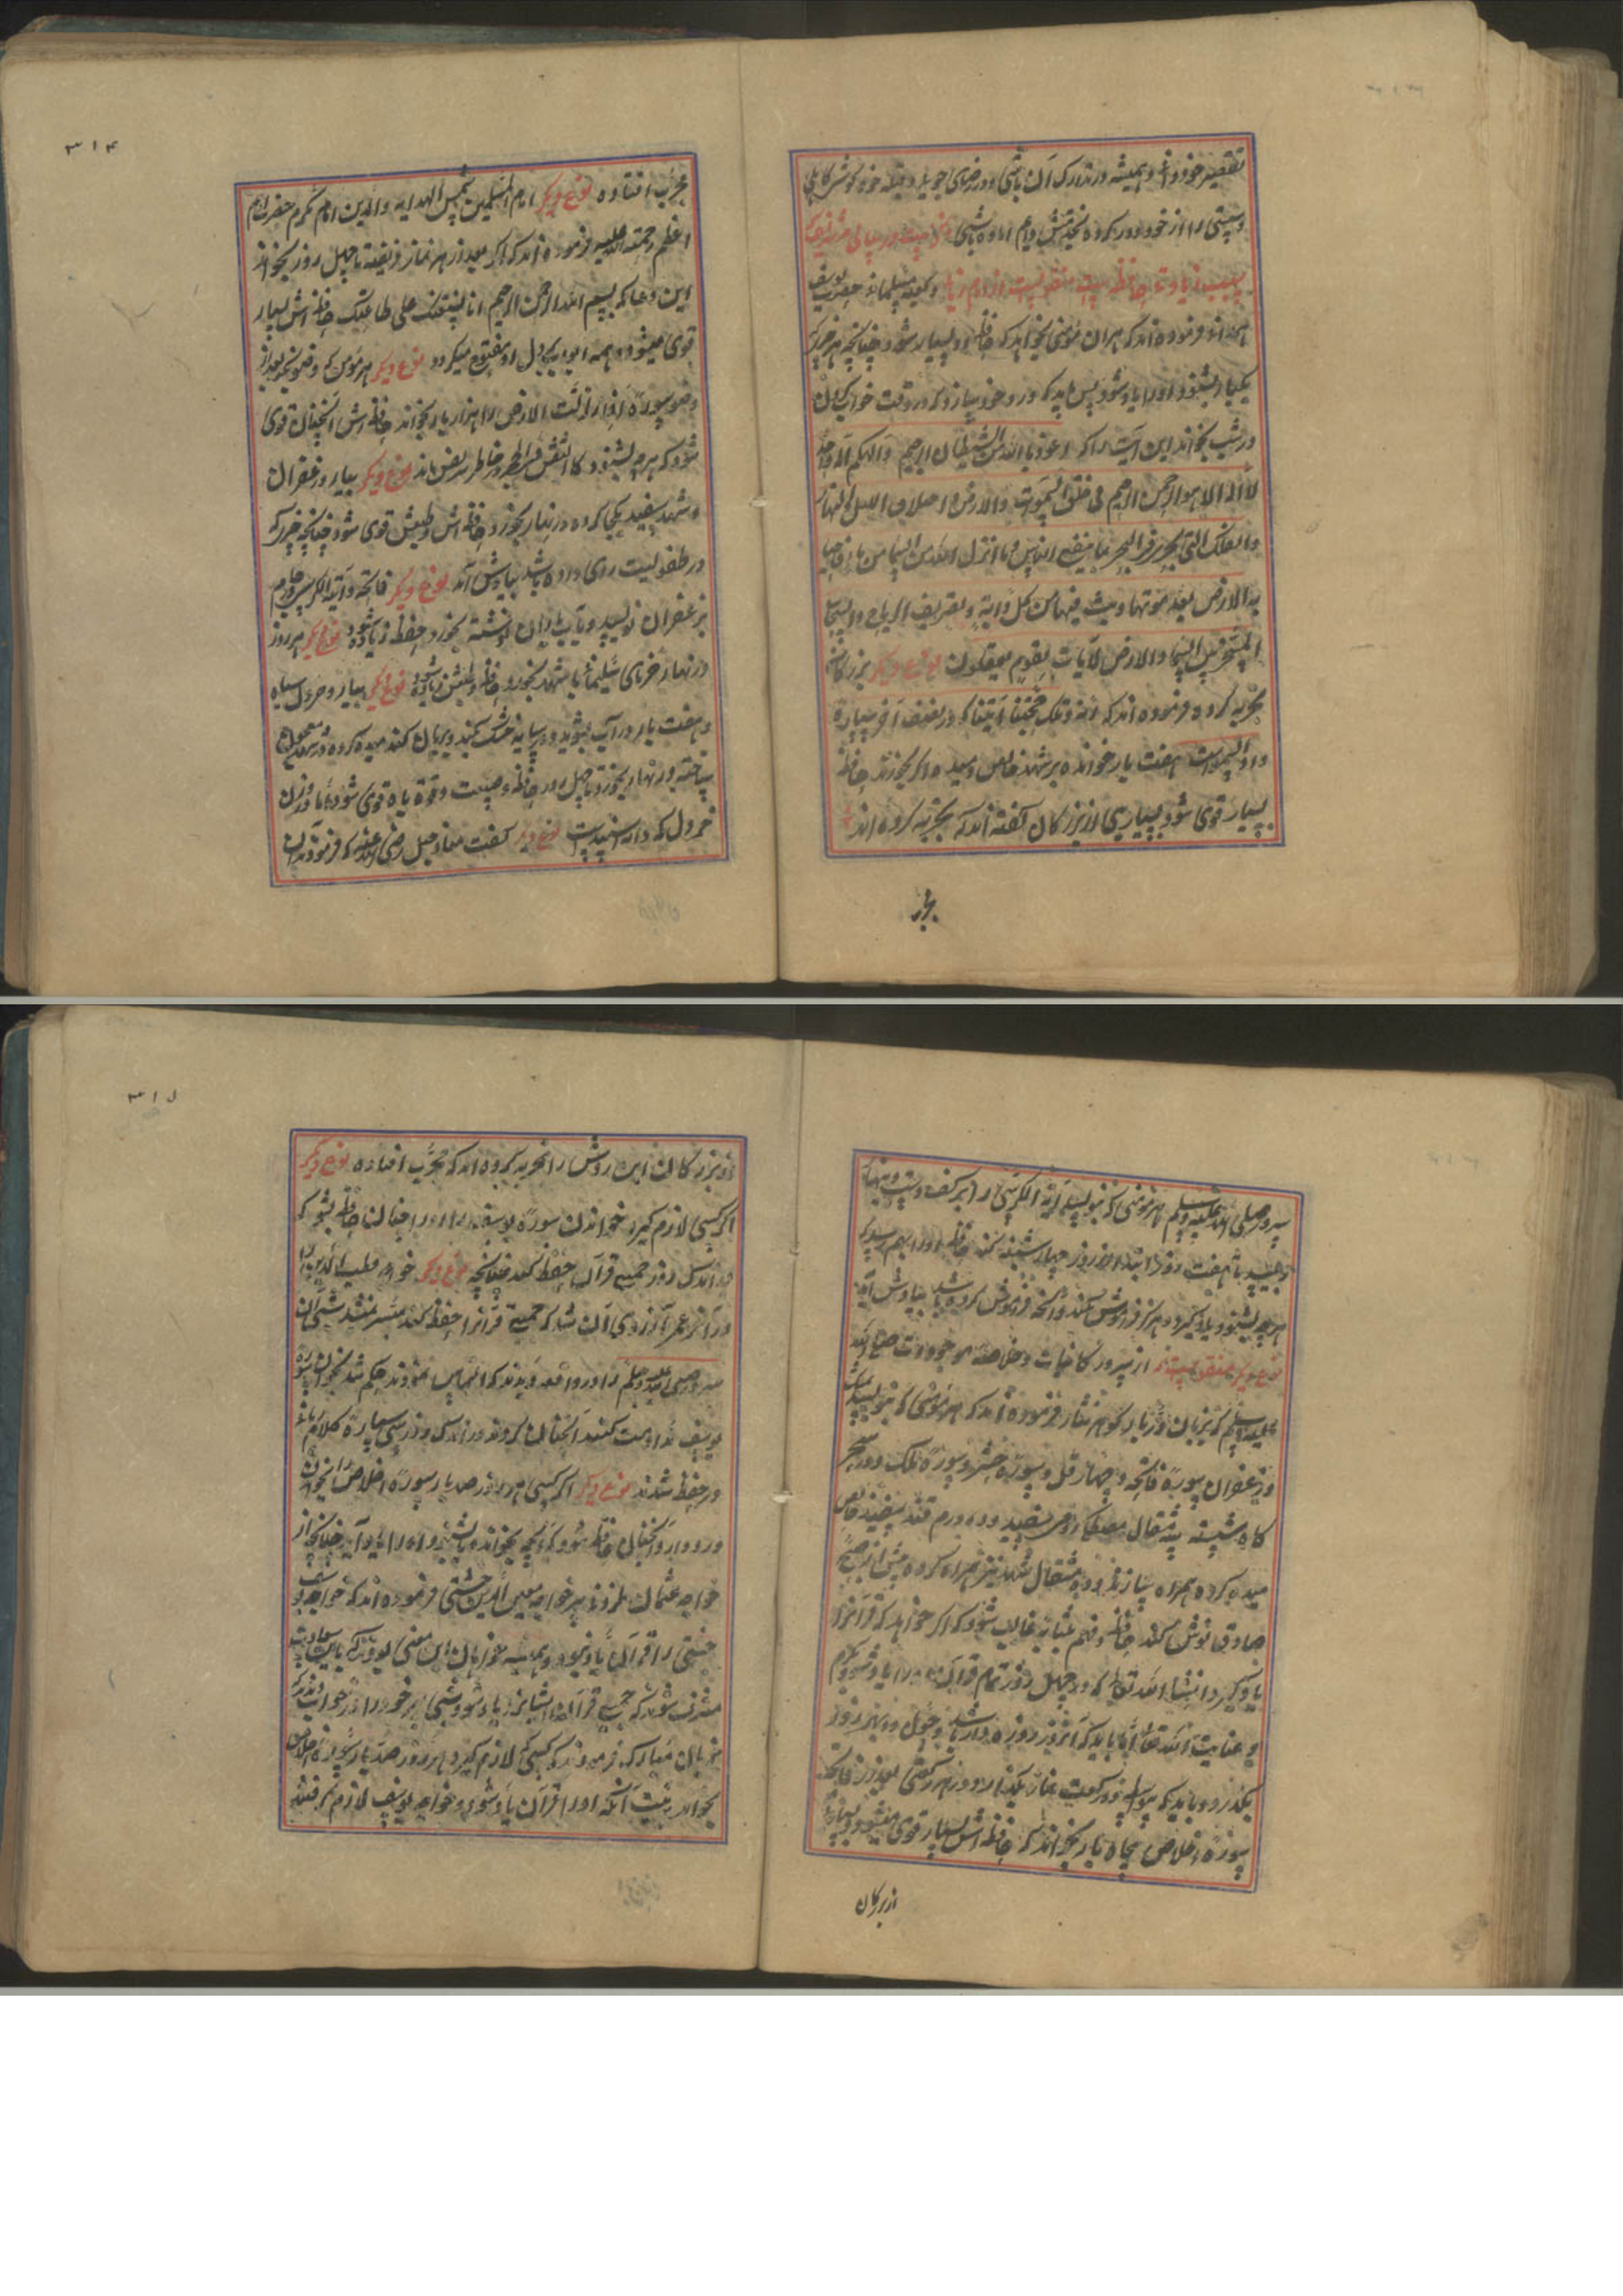 تقصیر خود و همیشه در تدارک آن باشی و در رضای جوید وقبله خود کوشش کاهلی
و سستی را از خود دور کرده بخدمتش دایم آماده باشی
سبب زیادتی حافظه منقولست از
همدانی فرموده اند که هر آن مؤمنی بخواهد که حافظه او بسیار شود چنانچه هر چیز که
یکبار بشنود او را یاد شود پس باید که ورد خود سازد که در وقت خواب کردن
در شب بخواند این آیت را که اعوذ بالله من الشیطان الرجیم والهکم اله واحد
لا اله الا هو الرحمن الرحیم ان فی خلق السموات والارض واختلاف اللیل والنهار
والفلک التی تجری فی البحر بما ینفع الناس وما انزل الله من السماء من ماء فاحیا
به الارض بعد موتها وبث فیها من کل دابة وتصریف الریاح والسحاب
المسخر بین السماء والارض لآیات لقوم یعقلون نوع دیگر بزرگان
تجربه کرده فرموده اند که آیه وتلک حجتنا آتینا که در نصف آخر سیپاره
واذا سمعوا است هفت بار خوانده بر شهد خالص دمیده اگر بخورند حافظه
بسیار قوی شود و بسیاری از بزرگان گفته اند که تجربه کرده اند
مجرب
۳۱۴
مجرب افتاده نوع دیگر امام المسلمین شمس الهدایه والدین امام مکرم حضرت امام
اعظم رحمة الله علیه فرموده اند که اگر بعد از هر نماز فریضه تا چهل روز بخواند
این دعا که بسم الله الرحمن الرحیم انا نستعینک علی طاعتک حافظه اش بسیار
قوی میشود و همه ابواب بدل او مفتوح میگردد نوع دیگر هر مؤمن که وضو بکند بعد از
وضو سورة اذا زلزلت الارض را هزار بار بخواند حافظه اش آنچنان قوی
شود که هر چه بشنود کالنقش فی الحجر در خاطر نقش ماند نوع دیگر بیارد زعفران
و شهد سفید یکجا کرده در نهار بخورد حافظه اش و طبعش قوی شود چنانچه چیزیکه
در طفولیت روی داده باشد بیادش آید نوع دیگر فاتحه و آیة الکرسی
بزعفران نویسد و بآب باران شسته بخورد حفظ زیاده شود نوع دیگر هر روز
در نهار خرمای سلیمانی با شهد بخورد حافظه و طبعش زیاده شود نوع دیگر بیارد خردل سیاه
و هفت بار در آب بشوید و در سایه خشک کند و بریان کند میده کرده
ساخته در نهار بخورد تا چهل روز حافظه و صحبت و قوة باه قوی شود اما وزن
خردل که دانه اسپند است نوع دیگر گفت معاذ جبل رضی الله عنه که فرمودند آن
سرور صلی الله علیه وسلم هر مؤمنی که بنویسد آیة الکرسی را بر کف دست و بنهار
بلیسید تا هفت روز ابتدا از روز چهارشنبه کند حافظه او را بهم رسد که
هر چه بشنود یاد گیرد و هرگز فراموش نکند و آنچه فراموش کرده باشد بیادش آید
نوع دیگر منقولست از سرور کاینات و خلاصه موجودات صلی الله
علیه وسلم که بزبان در بار گوهر نثار فرموده اند که هر مؤمنی که بنویسد بمشک
و زعفران سورة فاتحه و چهار قل و سورة حشر و سورة ملک و در سحر
گاه شسته سه مثقال مصطکی رومی سفید و ده درم قند سفید خالص
میده کرده همراه سازند و ده مثقال شهد نیز همراه کرده پیش از صبح
صادق نوش کند حافظه و فهم بمثابه غالب شود که اگر خواهد که قرآنرا
یاد گیرد انشاء الله تعالی که در چهل روز تمام قرآن را یاد شود بکرم
و عنایت الله تعالی اما باید که آنروز روزه دار باشد و چون دو پهر روز
بگذرد و باید که دو رکعت نماز بگذارد و در هر رکعتی بعد از فاتحه
سورة اخلاص پنجاه بار بخواند که حافظه اش بسیار قوی میشود و بسیاری
از بزرکان
۳۱۵
از بزرگان این روش را تجربه کرده اند که مجرب افتاده نوع دیگر
اگر کسی لازم گیرد خواندن سورة یوسف را او را چنان حافظه شود که
در اندک روز جمیع قرآن حفظ کند چنانچه نوع دیگر خواجه قطب الدین را
در آخر عمر آرزوی آن شد که جمیع قرآنرا حفظ کند میسر نمیشد شبی آن
سرور صلی الله علیه وسلم را در واقعه دیدند که التماس نمودند حکم شد بخواندن سوره
یوسف مداومت کنند آنچنان کردند در اندک روز سی سپاره کلام الله
در حفظ شدند نوع دیگر اگر کسی هر روز صد بار سورة اخلاص را بخواندن
ورد دارد آنچنان حافظه شود که آنچه بخواند یا بشنود او را یاد آید چنانچه از
خواجه عثمان هارونی پیر خواجه معین الدین چشتی فرموده اند که خواجه یوسف
چشتی را قرآن یاد نبود و همیشه خواهان این معنی بودند که باین سعادت
مشرف شوند که جمیع قرآن ایشانرا یاد شود شبی پیر خود را در خواب دیدند که
بزبان مبارک فرمودند که کسی که لازم گیرد هر روز صد بار سورة اخلاص
بخواند به نیت آنکه او را قرآن یاد شود و خواجه یوسف لازم گرفتند